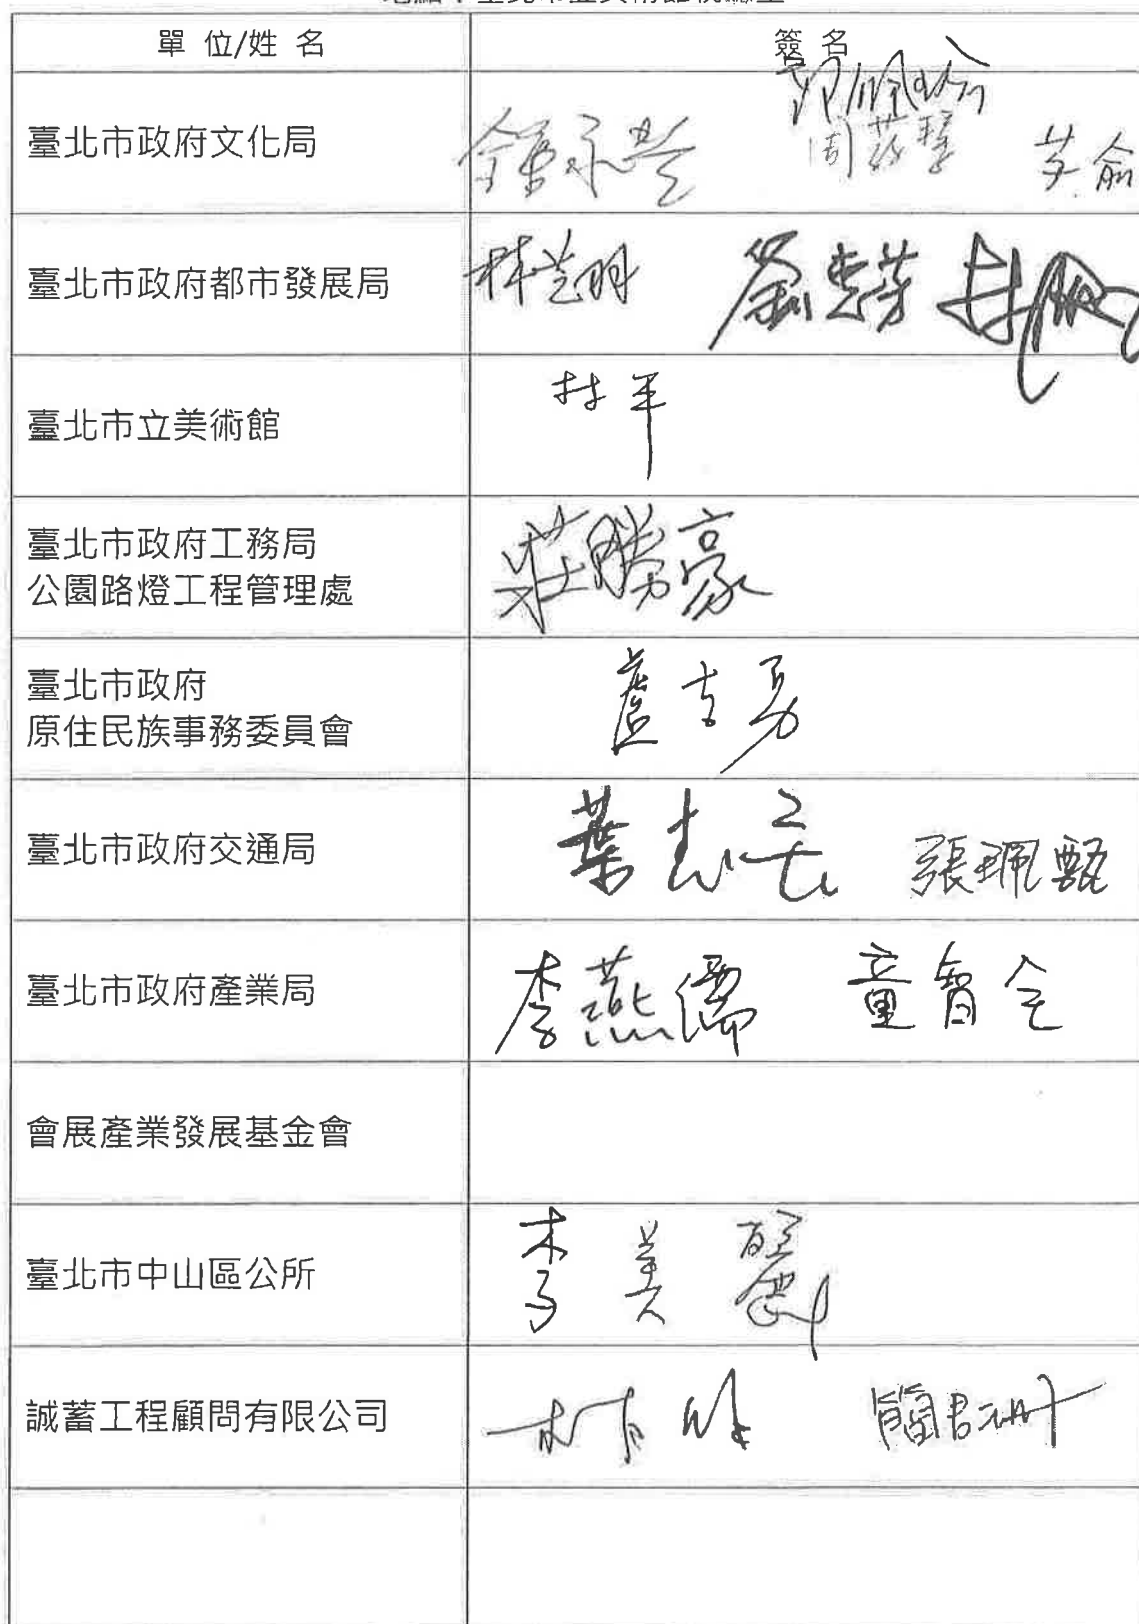 單位/姓名 簽名
臺北市政府文化局 鍾永豐 周蓓琴
臺北市政府都市發展局 林芝羽
臺北市立美術館 林平
臺北市政府工務局
公園路燈工程管理處 莊勝豪
臺北市政府
原住民族事務委員會 盧吉勇
臺北市政府交通局 葉志宏 張珮甄
臺北市政府產業局 李燕儒 童智全
會展產業發展基金會
臺北市中山區公所 李美麗
誠蓄工程顧問有限公司 簡書珊